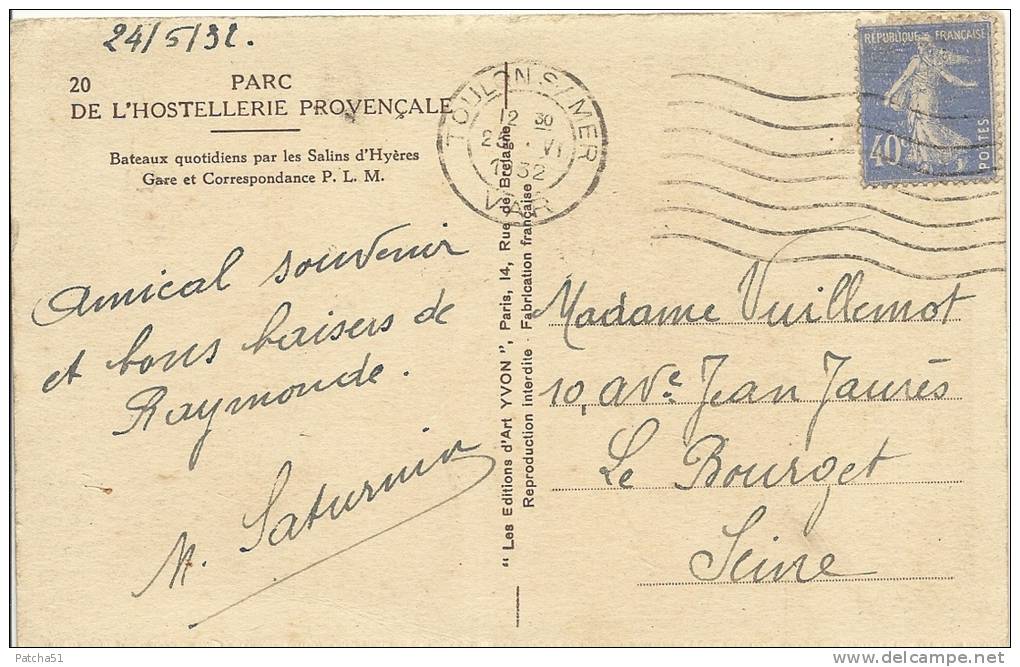 24/5/32.
20 PARC
DE L'HOSTELLERIE PROVENÇALE
Bateaux quotidiens par les Salins d'Hyères
Gare et Correspondance P. L. M.
Amical souvenir
et bons baisers de
Raymonde.
M. Saturnin
"Les Editions d'Art YVON", Paris, 14, Rue de Bretagne
Reproduction Interdite - Fabrication française
TOULON S/MER
12 30
VI
1932
VAR
REPUBLIQUE FRANÇAISE
40c
POSTES
Madame Vuillemot
10, ave Jean Jaurès
Le Bourget
Seine
Patcha51
delcampe.net